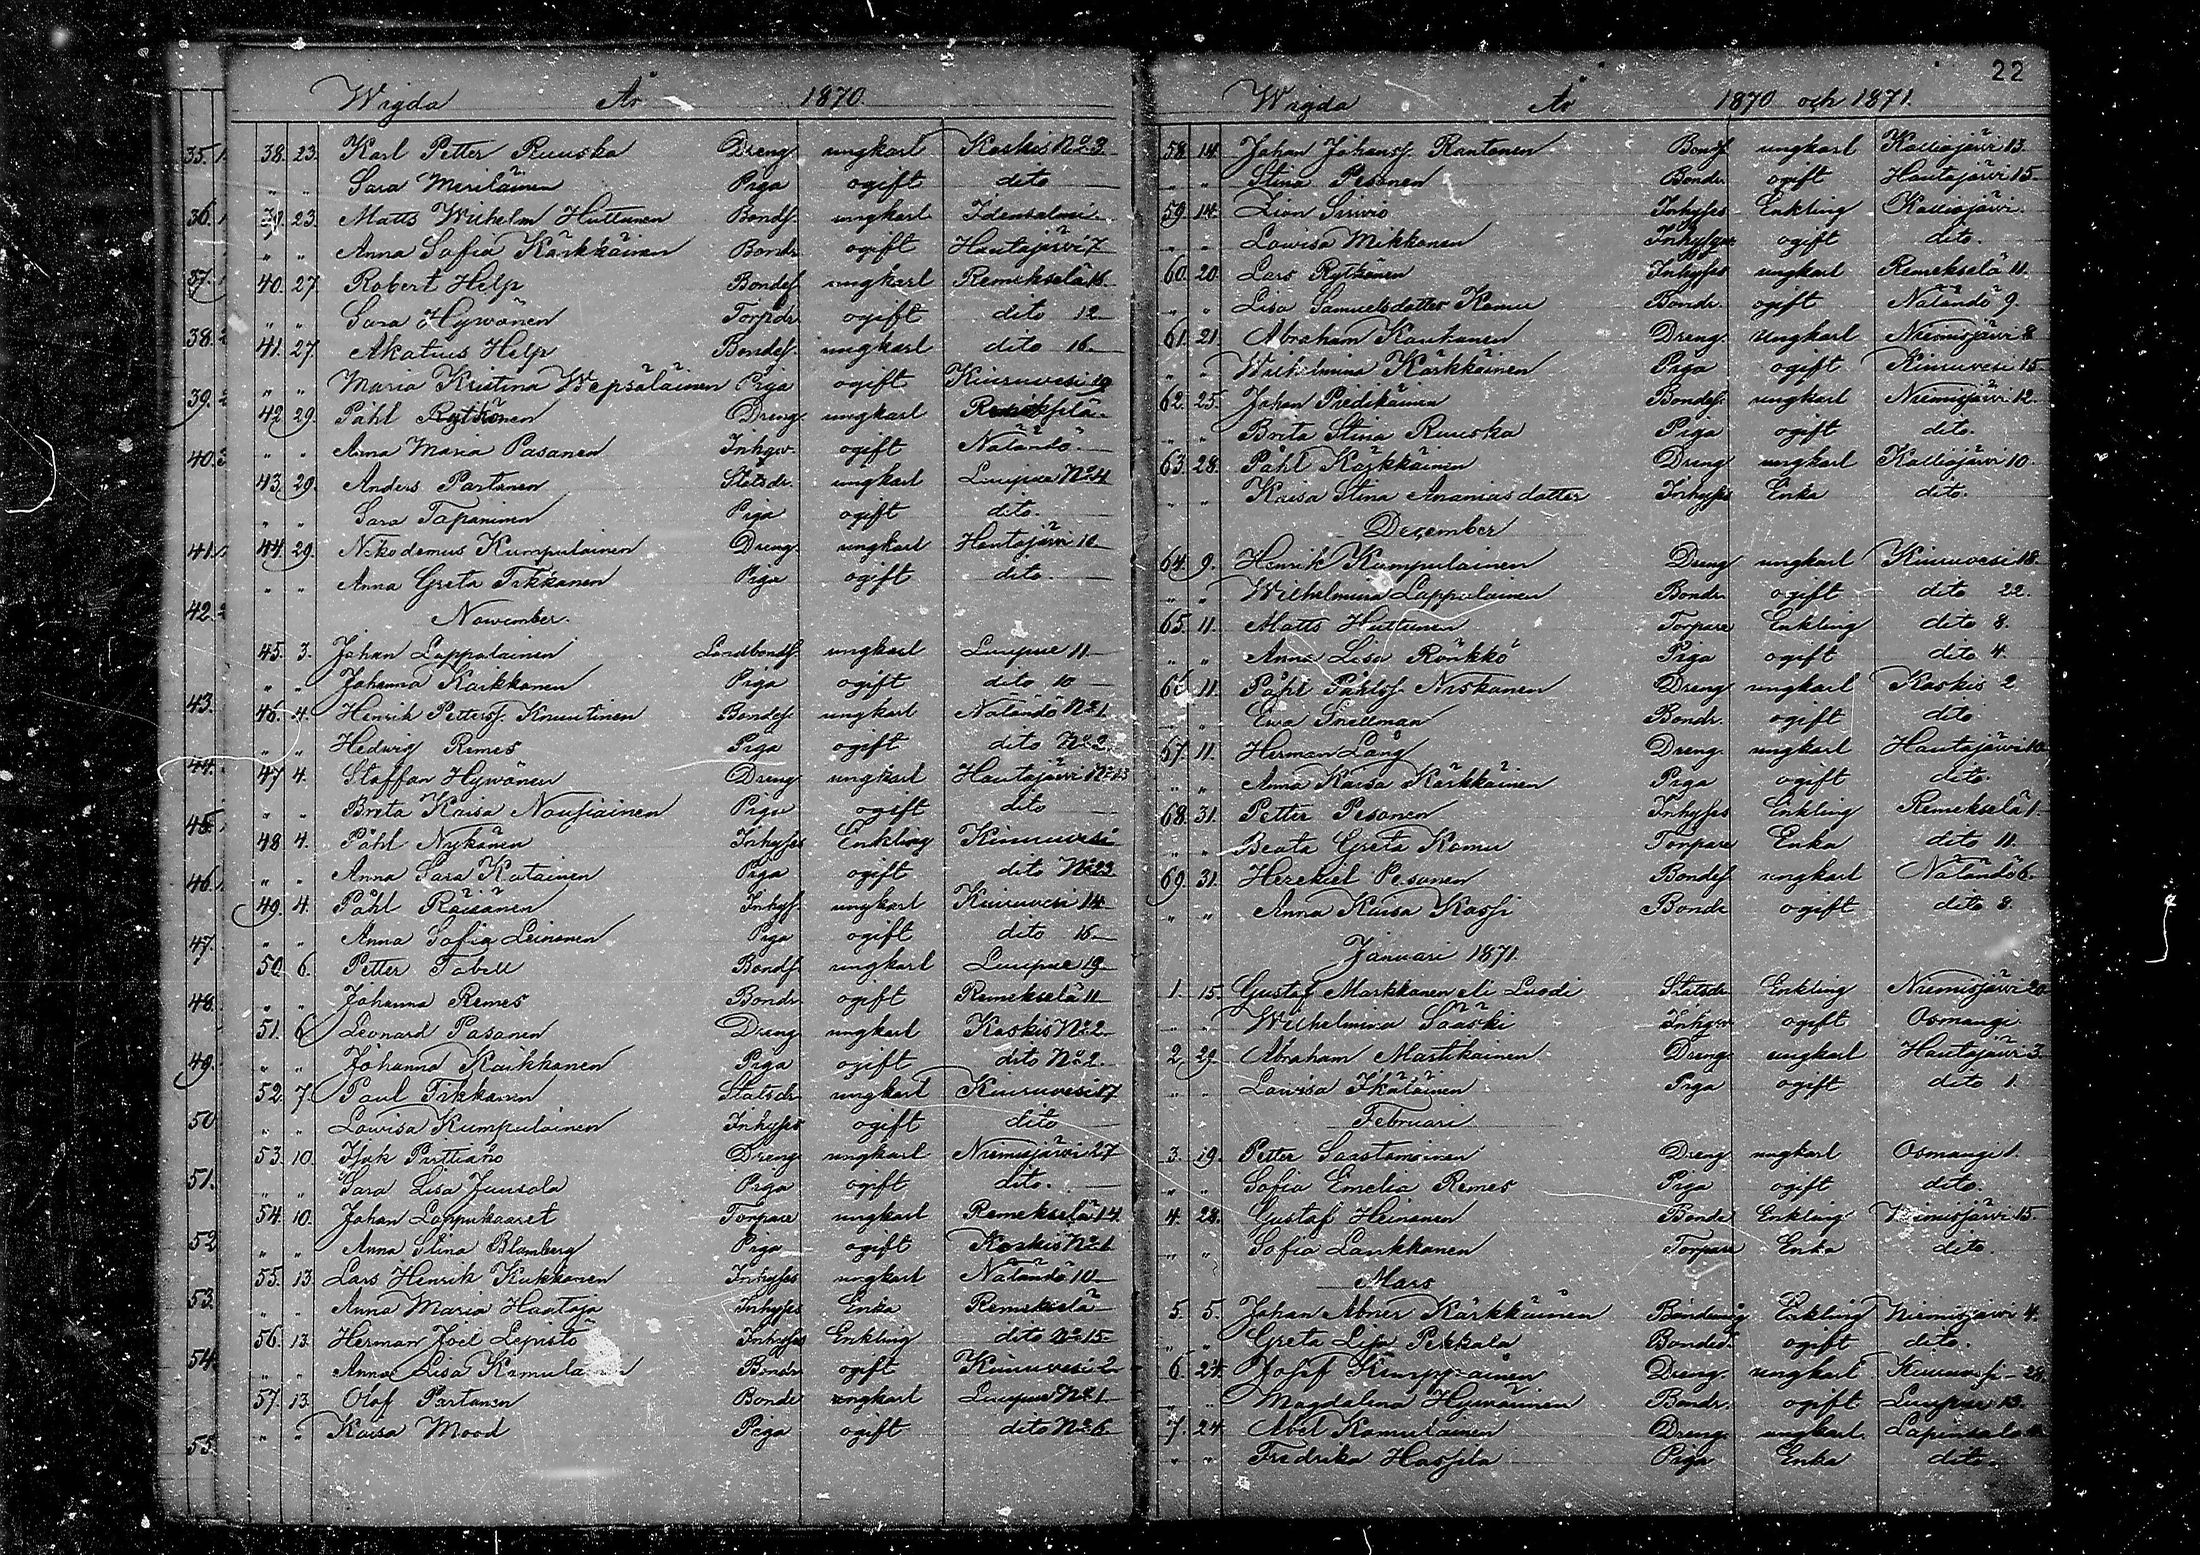 Wigda År 1870
38. 23. Karl Petter Ruuska Dreng ungkarl Koskis No 3
" " Sara Meriläinen Piga ogift dito
39. 23. Matts Wilhelm Huttunen Bondes. ungkarl Idensalmi.
" " Anna Sofia Kärkkäinen Bondr. ogift Hautajärvi 7
40. 27. Robert Help Bondes. ungkarl Remekselä 16
" " Sara Hywönen Torpdr. ogift dito 12
41. 27. Akatius Help Bondes. ungkarl dito 16
" " Maria Kristina Wepsäläinen Piga ogift Kiuruvesi 19
42. 29. Påhl Rytkönen Dreng ungkarl
" " Anna Maria Pasanen Inhgr. ogift Näländö
43. 29. Anders Partanen Statsdr. ungkarl Luupue No 4
" " Sara Tapaninen Piga ogift dito.
44. 29. Nikodemus Kumpulainen Dreng ungkarl Hautajärvi 10
" " Anna Greta Tikkanen Piga ogift dito.
November.
45. 3. Johan Lappalainen Landbonds. ungkarl Luupue 11
" " Johanna Karkkanen Piga ogift dito 10
46. 4. Henrik Petterss. Knuutinen Bondes. ungkarl Näländö No 1
" " Hedwig Remes Piga ogift dito No 2
47 4. Staffan Hywönen Dreng ungkarl Hautajärvi No 13
" " Brita Kaisa Nousiainen Piga ogift dito
48 4. Påhl Nykänen Inhyses Enkling Kiuruvesi
" " Anna Sara Katainen Piga ogift dito No 22
49. 4. Påhl Räisänen Inhys. ungkarl Kiuruvesi 14
" " Anna Sofia Leinonen Piga ogift dito 15
50. 6. Petter Tabell Bonds. ungkarl Luupue 19
" " Johanna Remes Bondr. ogift Remekselä 11
51. 6 Leonard Pasanen Dreng ungkarl Koskis No 2
" " Johanna Karkkanen Piga ogift dito No 2
52. 7. Paul Tikkanen Statsdr. ungkarl Kiuruvesi 17
" " Lowisa Kumpulainen Inhyses ogift dito
53. 10. Isak Purtiaho Dreng ungkarl Niemisjärvi 27
" " Sara Lisa Juusola Piga ogift dito.
54. 10. Johan Lappukaaret Torpare ungkarl Remekselä 14
" " Anna Stina Blomberg Piga ogift Koskis No 1
55. 13. Lars Henrik Kukkonen Inhyses ungkarl Näländö 10
" " Anna Maria Hautaja Inhyses Enka Remekselä
56. 13. Herman Joel Lepistö Inhyses Enkling dito No 15
" " Anna Lisa Bondr. ogift Kiuruvesi 2
57. 13. Olof Partanen Bonde ungkarl Luupue No 1
" " Kaisa Mood Piga ogift dito No 6
35.
36.
37.
38.
39.
40.
41.
42.
43.
44.
45.
46.
47.
48.
49.
50
51.
52
53.
54.
55.
22
Wigda År 1870 och 1871.
58. 14. Johan Johanss. Rantanen Bonds. ungkarl Kalliojärvi 13.
" " Stina Pesonen Bondr. ogift Hautajärvi 15
59. 14. Lion Sirviö Inhyses Enkling Kalliojärvi.
" " Lowisa Mikkonen ogift dito.
60. 20. Lars Rytkönen Inhyses ungkarl Remekselä 11.
" " Lisa Samuelsdotter Komu Bondr. ogift Näländö 9.
61. 21. Abraham Kauhanen Dreng. ungkarl Niemisjärvi 8
" " Wilhelmina Kärkkäinen Piga ogift Kiuruvesi 15
62. 25. Johan Pridikäinen Bondes. ungkarl Niemisjärvi 12.
" " Brita Stina Ruuska Piga ogift dito.
63. 28. Påhl Kärkkäinen Dreng ungkarl Kalliojärvi 10.
" " Kaisa Stina Ananias dotter Inhyses Enka dito.
December
64. 9. Henrik Kumpulainen Dreng ungkarl Kiuruvesi 18.
" " Wilhelmina Lappalainen Bondr. ogift dito 22.
65. 11. Matts Huttunen Torpare Enkling dito 8.
" " Anna Lisa Rönkkö Piga ogift dito 4.
66. 11. Påhl Påhlss. Niskanen Dreng. ungkarl Koskis 2.
" " Ewa Snellman Bondr. ogift dito
67. 11. Herman Lång Dreng. ungkarl Hautajärvi 10
" " Anna Kaisa Kärkkäinen Piga ogift dito.
68. 31. Petter Pesonen Inhyses Enkling Remekselä 1.
" " Beata Greta Komu Torpare Enka dito 11.
69. 31. Hezekiel Pesonen Bondes. ungkarl Näländö 6.
" " Anna Kaisa Kassi Bondr. ogift dito 8.
Januari 1871.
1. 15. Gustaf Markkanen eli Luodi Statsdr. Enkling Niemisjärvi 20
" " Wilhelmina Sääski Inhgr. ogift Osmangi
2. 29. Abraham Martikainen Dreng. ungkarl Hautajärvi 3.
" " Lowisa Ikäläinen Piga ogift dito 1.
Februari
3. 19. Petter Saastamoinen Dreng ungkarl Osmangi 1.
" " Sofia Emelia Remes Piga ogift dito.
4. 28. Gustaf Heinonen Bonde Enkling Niemisjärvi 15.
" " Sofia Laukkanen Torpare Enka dito.
Mars
5. 5. Johan Abner Kärkkäinen Enkling Niemisjärvi 4.
" " Greta Lisa Pekkala Bonded. ogift dito.
6. 24. Josef Kemppainen Dreng. ungkarl Kiuruvesi 28.
" " Magdalena Hyvärinen Bondr. ogift Luupue 13.
7. 24. Abel Komulainen Dreng. ungkarl. Lapinsalo
" " Fredrika Piga Enka dito.